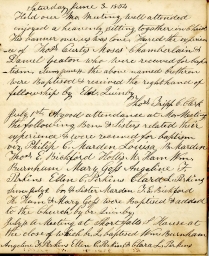 Saturday June 3. 1854
Held our Mo. Meeting, well attended
enjoyed a heavenly sitting together in Christ
His banner over us was love. Heard the experien
ce of Thos. Curtis Moses Chamberlain &
Daniel Geaton who were received for bap-
tism, the above named brethren
were Baptised & received the right hand of
fellowship by Eld. Lunby.
Thos. Clerk
July 1st A good attendance at Mo. Meeting
the following Bro. & Sisters related their
experience & were received for baptism
viz. Philip C. Marden Louisa B. Marden
Thos. E. Bickford Wm.
Burnham Mary Goss Angeline F.
Perkins Ellen C. Perkins Clara L. Perkins
Bro & Sister Marden T. E. Bickford
H. Ham & Mary Goss were Baptised & added
to the Church by the Lunby.
July 2 Meeting at House at
the close of which was baptised Wm. Burnham
Angeline F. Perkins Ellen C. Perkins & Clara L. Perkins